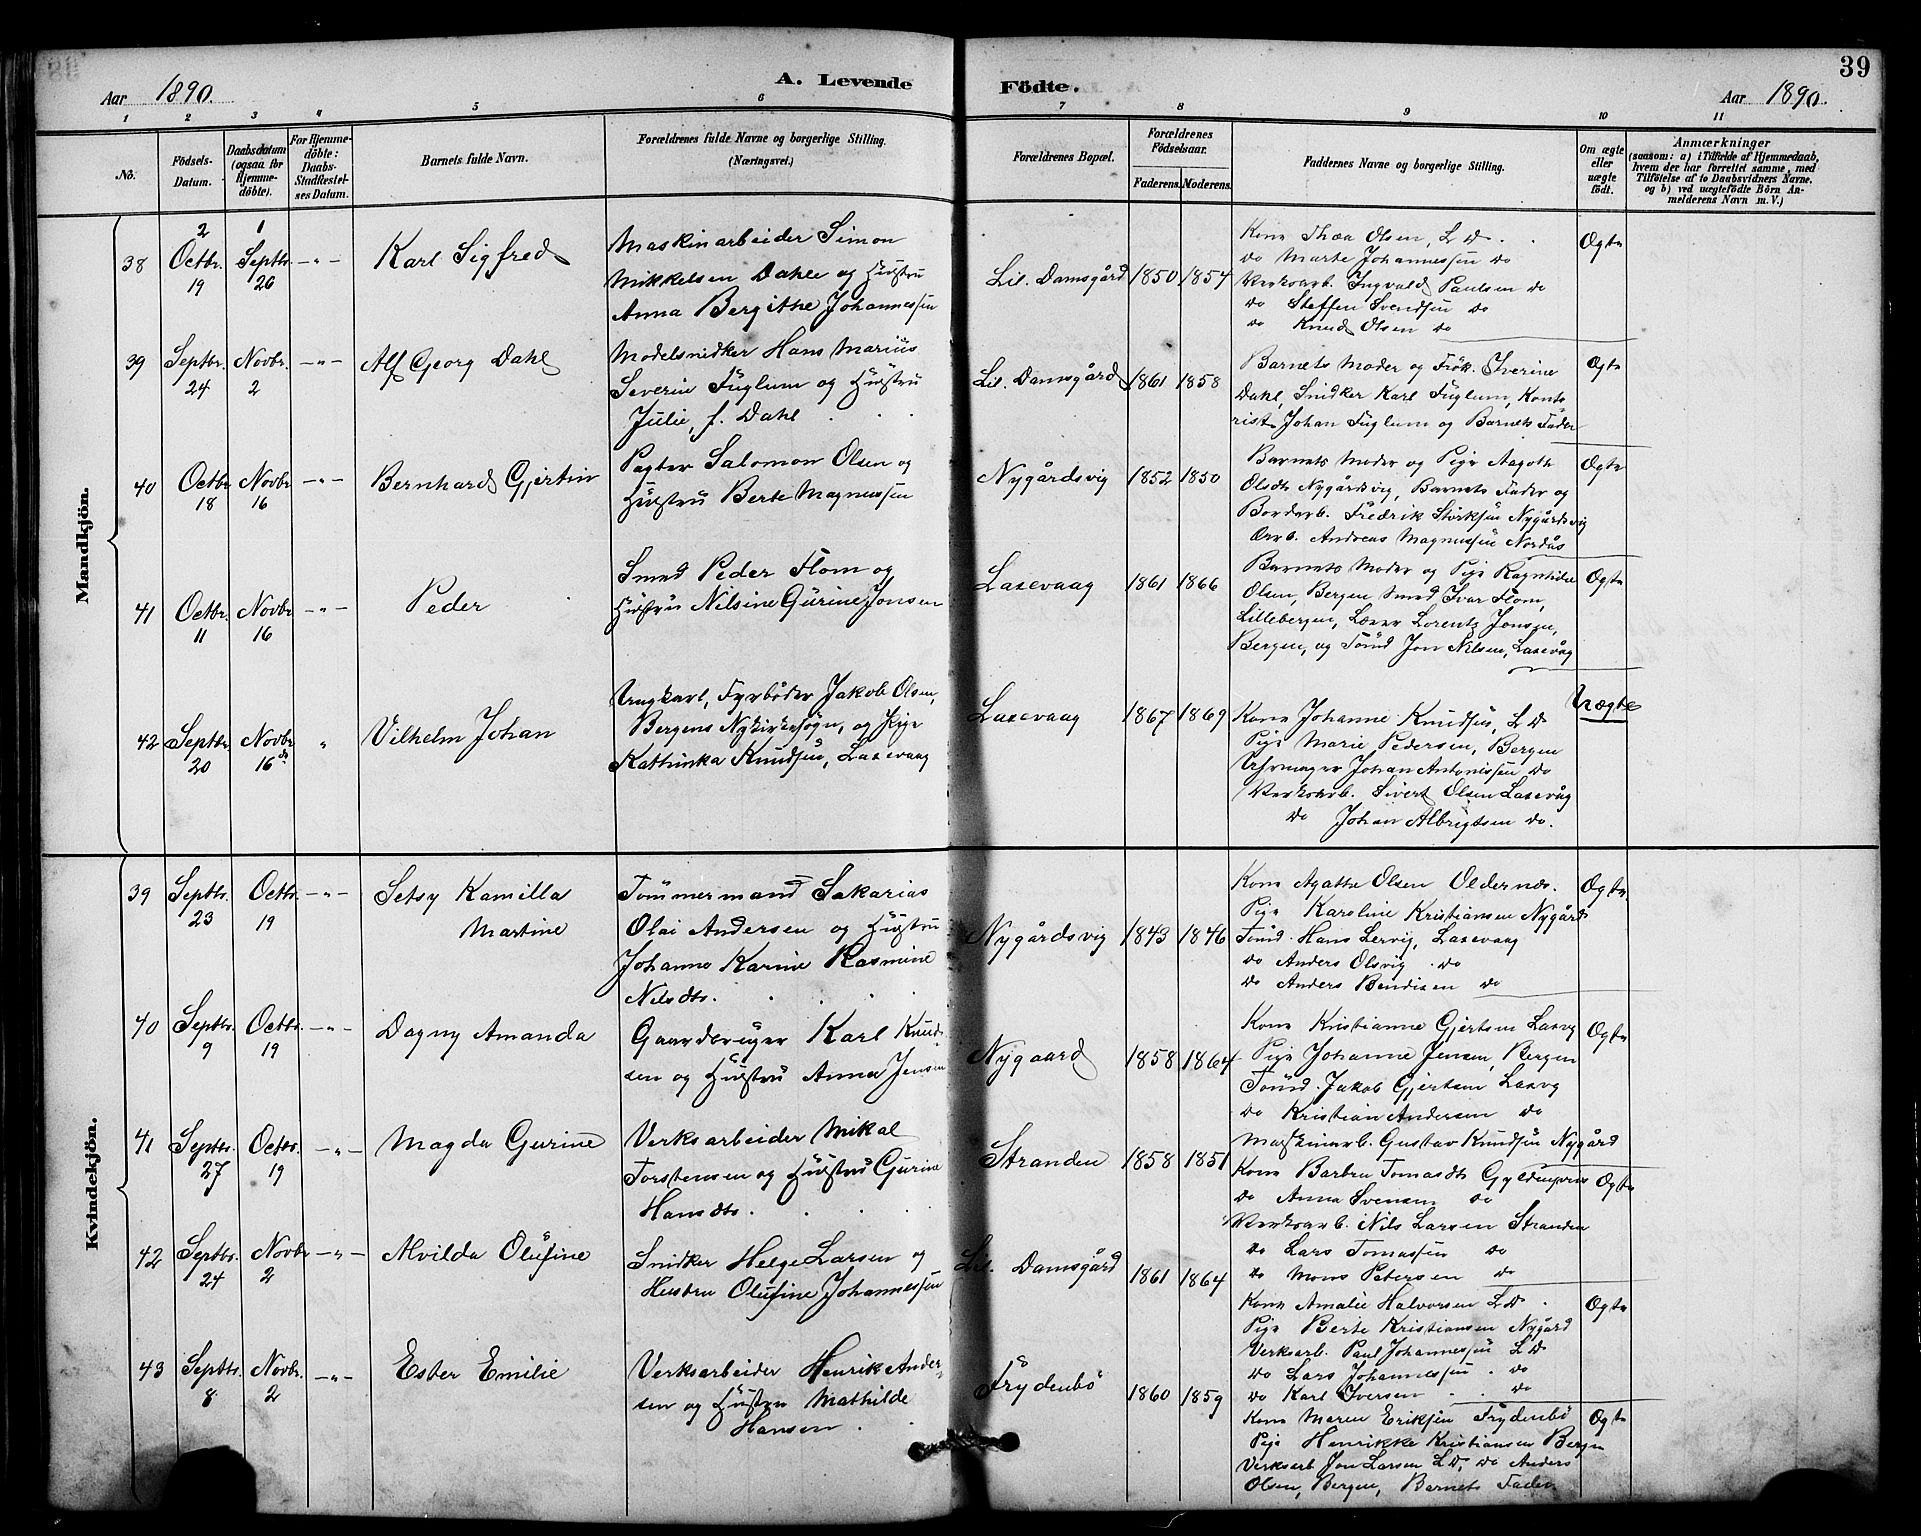 39
Aar 1890.
A. Levende
Födte.
Aar 1890.
1 2 3 4 5 6 7 8 9 10 11
No.
Födsels-
Datum.
Daabsdatum
(ogsaa for
Hjemme-
döbte).
For Hjemme-
döbte:
Daabs-
Stadfæstel-
ses Datum.
Barnets fulde Navn.
Forældrenes fulde Navne og borgerlige Stilling.
(Næringsvei.)
Forældrenes Bopæl.
Forældrenes
Födselsaar.
Faderens. Moderens.
Faddernes Navne og borgerlige Stilling.
Om ægte
eller
uægte
födt.
Anmærkninger
(saasom: a) i Tilfælde af Hjemmedaab,
hvem der har forrettet samme, med
Tilföielse af to Daabsvidners Navne,
og b) ved uægtefödte Börn An-
melderens Navn m. V.)
Mandkjön.
38
2
Octbr.
19
1
Septbr.
26
-"-
Karl Sigfred
Maskinarbeider Simon
Mikkelsen Dahle og Hustru
Anna Bergithe Johannessen
Lil. Damsgård
1850 1854
Kone Thea Olsen, L D.
do Marte Johannessen do
Verksarb. Ingvald Paulsen do
do Steffen Svendsen do
do Knud Olsen do
Ægte
39
Septbr.
24
Novbr.
2
-"-
Alf Georg Dahl
Modelsnidker Hans Marius
Severin Fuglum og Hustru
Julie, f. Dahl
Lil. Damsgård
1861 1858
Barnets Moder og Frök. Iverine
Dahl, Snidker Karl Fuglum, Konto-
rist Johan Fuglum og Barnets Fader
Ægte
40
Octbr.
18
Novbr.
16
-"-
Bernhard Gjertin
Pagter Salomon Olsen og
Hustru Berte Magnussen
Nygårdsvig
1852 1850
Barnets Moder og Pige Aagoth
Olsdtr Nygårdsvig, Barnets Fader og
Bordarb. Fredrik Störksen Nygårdsvig
Arb. Andreas Magnussen Nordås
Ægte
41
Octbr.
11
Novbr.
16
-"-
Peder
Smed Peder Flom og
Hustru Nilsine Gurine Jonsen
Laxevaag
1861 1866
Barnets Moder og Pige Ragnhilde
Olsen, Bergen Smed Ivar Flom,
Lillebergen, Lærer Lorentz Jonsen,
Bergen, og Tömd Jon Nilsen, Laxevåg
Ægte
42
Septbr.
20
Novbr.
16 de
"
Vilhelm Johan
Ungkarl, Fyrböder Jakob Olsen,
Bergens Nykirkesogn, og Pige
Kathinka Knudsen, Laxevaag
Laxevaag
1867 1869
Kone Johanne Knudsen, L D
Pige Marie Pedersen, Bergen
Uhrmager Johan Antonissen do
Verksarb. Sivert Olsen Laxevåg
do Johan Albrigtsen do.
Uægte
Kvindekjön.
39
Septbr.
23
Octbr.
19
-"-
Setsy Kamilla
Martine
Tömmermand Sakarias
Olai Andersen og Hustru
Johanne Karine Rasmine
Nilsdtr.
Nygårdsvig
1843 1846
Kone Agatha Olsen Oldernæs.
Pige Karoline Kristiansen Nygård
Tömd. Hans Lervig, Laxevaag
do Anders Olsvig do
do Anders Bendixen do
Ægte
40
Septbr.
9
Octbr.
19
-"-
Dagny Amanda
Gaardbruger Karl Knud-
sen og Hustru Anna Jensen
Nygaard
1858 1864
Kone Kristianne Gjertsen Laxvg
Pige Johanne Jensen, Bergen
Tömd. Jakob Gjertsen Laxvg
do Kristian Andersen do
Maskinarb. Gustav Knudsen Nygård
Ægte
41
Septbr.
27
Octbr.
19
-"-
Magda Gurine
Verksarbeider Mikal
Torstensen og Hustru Gurine
Hansdtr.
Stranden
1858 1851
Kone Barbra Tomasdtr Gyldenpris
do Anna Svensen do
Verksarb. Nils Larsen Stranden
do Lars Tomassen do
do Mons Petersen do
Ægte
42
Septbr.
24
Novbr.
2
-"-
Alvilda Olufine
Snidker Helge Larsen og
Hustru Olufine Johannessen
Lil. Damsgård
1861 1864
Kone Amalie Halvorsen L D.
Pige Berte Kristiansen Nygård
Verksarb. Paul Johannessen L D
do Lars Johannessen do
do Karl Iversen do
Ægte
43
Septbr.
8
Novbr.
2
-"-
Ester Emilie
Verksarbeider Henrik Ander-
sen og Hustru Mathilde
Hansen
Frydenbö
1860 1859
Kone Maren Eriksen Frydenbö
Pige Henrikke Kristiansen Bergen
Verksarb Jon Larsen L D, do Anders
Olsen, Bergen, Barnets Fader.
Ægte